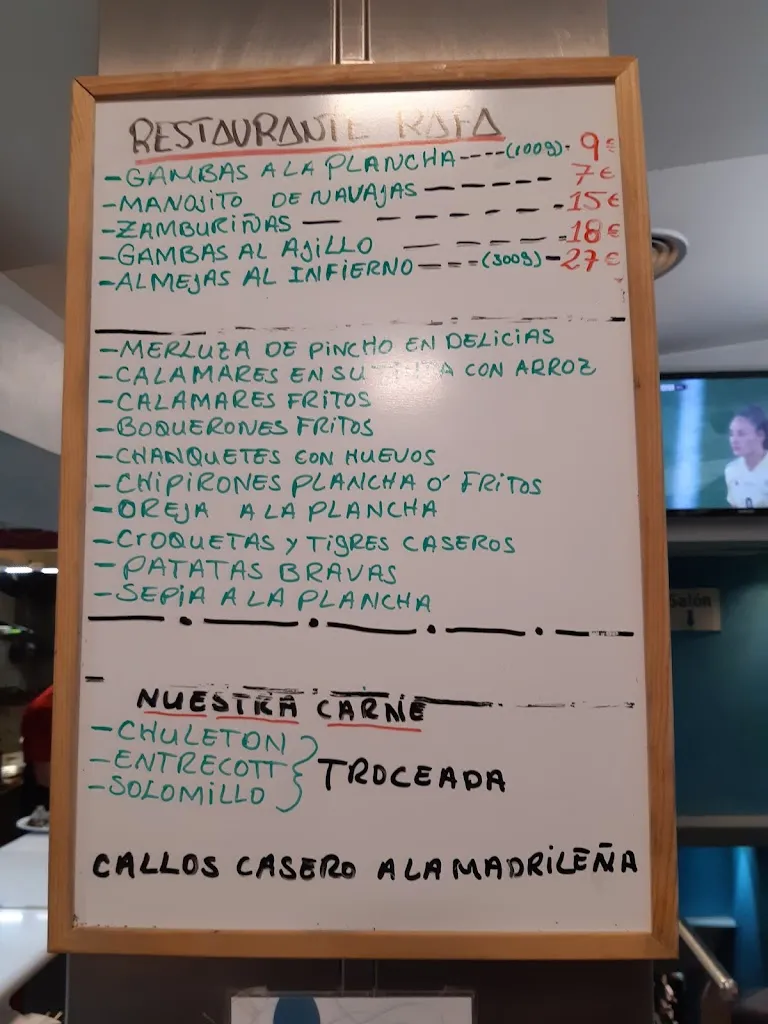 RESTAURANTE RAFA
-GAMBAS A LA PLANCHA----(100g)- 9€
-MANOJITO DE NAVAJAS - - - - - - 7€
-ZAMBURIÑAS - - - - - - -15€
-GAMBAS AL AJILLO - - - - -18€
-ALMEJAS AL INFIERNO----(300g)-27€
-MERLUZA DE PINCHO EN DELICIAS
-CALAMARES EN SU TINTA CON ARROZ
-CALAMARES FRITOS
-BOQUERONES FRITOS
-CHANQUETES CON HUEVOS
-CHIPIRONES PLANCHA O' FRITOS
-OREJA A LA PLANCHA
-CROQUETAS Y TIGRES CASEROS
-PATATAS BRAVAS
-SEPIA A LA PLANCHA
Salón
NUESTRA CARNE
-CHULETON
-ENTRECOTT
-SOLOMILLO
TROCEADA
CALLOS CASERO A LA MADRILEÑA